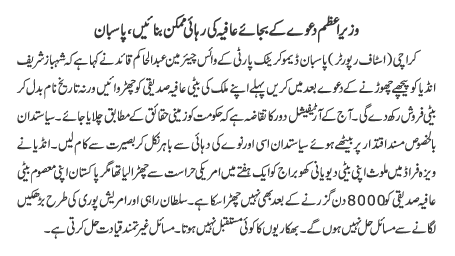 وزیراعظم دعوے کے بجائے عافیہ کی رہائی ممکن بنائیں، پاسبان
کراچی (اسٹاف رپورٹر) پاسبان ڈیموکریٹک پارٹی کے وائس چیئرمین عبدالحاکم قائد نے کہا ہے کہ شہباز شریف
انڈیا کو پیچھے چھوڑنے کے دعوے بعد میں کریں پہلے اپنے ملک کی بیٹی عافیہ صدیقی کو چھڑوائیں ورنہ تاریخ نام بدل کر
بیٹی فروش رکھ دے گی۔ آج کے آرٹیفیشل دور کا تقاضہ ہے کہ حکومت کو زمینی حقائق کے مطابق چلایا جائے۔ سیاستدان
بالخصوص مسند اقتدار پر بیٹھے ہوئے سیاستدان اسی اور نوے کی دہائی سے باہر نکل کر بصیرت سے کام لیں۔ انڈیا نے
ویزہ فراڈ میں ملوث اپنی بیٹی دیویانی کھوبراج کو ایک ہفتے میں امریکی حراست سے چھڑا لیا تھا مگر پاکستان اپنی معصوم بیٹی
عافیہ صدیقی کو 8000 دن گزرنے کے بعد بھی نہیں چھڑا سکا ہے۔ سلطان راہی اور امریش پوری کی طرح بڑھکیں
لگانے سے مسائل حل نہیں ہوں گے۔ بھکاریوں کا کوئی مستقبل نہیں ہوتا۔ مسائل غیرتمند قیادت حل کرتی ہے۔